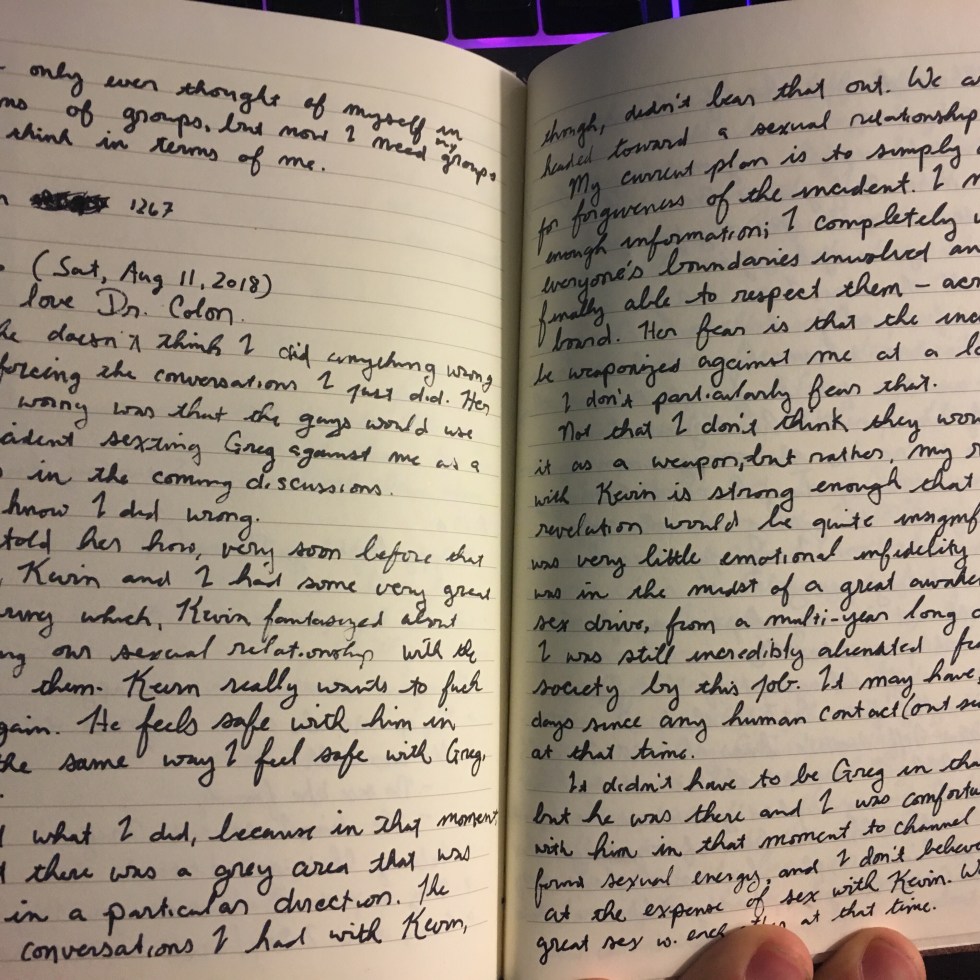 only ever thought of myself in
ms of groups, but now I need my groups
think in terms of me.
1267
(Sat, Aug 11, 2018)
love Dr. Colon.
he doesn't think I did anything wrong
forcing the conversations I just did. Her
worry was that the guys would use
cident sexting Greg against me as a
in the coming discussions.
know I did wrong.
told her how, very soon before that
, Kevin and I had some very great
uring which, Kevin fantasized about
ng our sexual relationship with the
them. Kevin really wants to fuck
gain. He feels safe with him in
the same way I feel safe with Greg.
what I did, because in that moment
there was a grey area that was
in a particular direction. The
conversations I had with Kevin,
though, didn't bear that out. We a
headed toward a sexual relationship
My current plan is to simply
for forgiveness of the incident. I
enough information; I completely
everyone's boundaries involved an
finally able to respect them – acr
board. Her fear is that the inc
be weaponized against me at a la
I don't particularly fear that.
Not that I don't think they wou
it as a weapon, but rather, my r
with Kevin is strong enough that
revelation would be quite insignif
was very little emotional infidelity
was in the midst of a great awake
sex drive, from a multi-year long
I was still incredibly alienated fr
society by this job. It may have
days since any human contact (out
at that time.
It didn't have to be Greg in tha
but he was there and I was comforta
with him in that moment to channel
found sexual energy, and I don't believe
at the expense of sex with Kevin. W
great sex w. each other at that time.